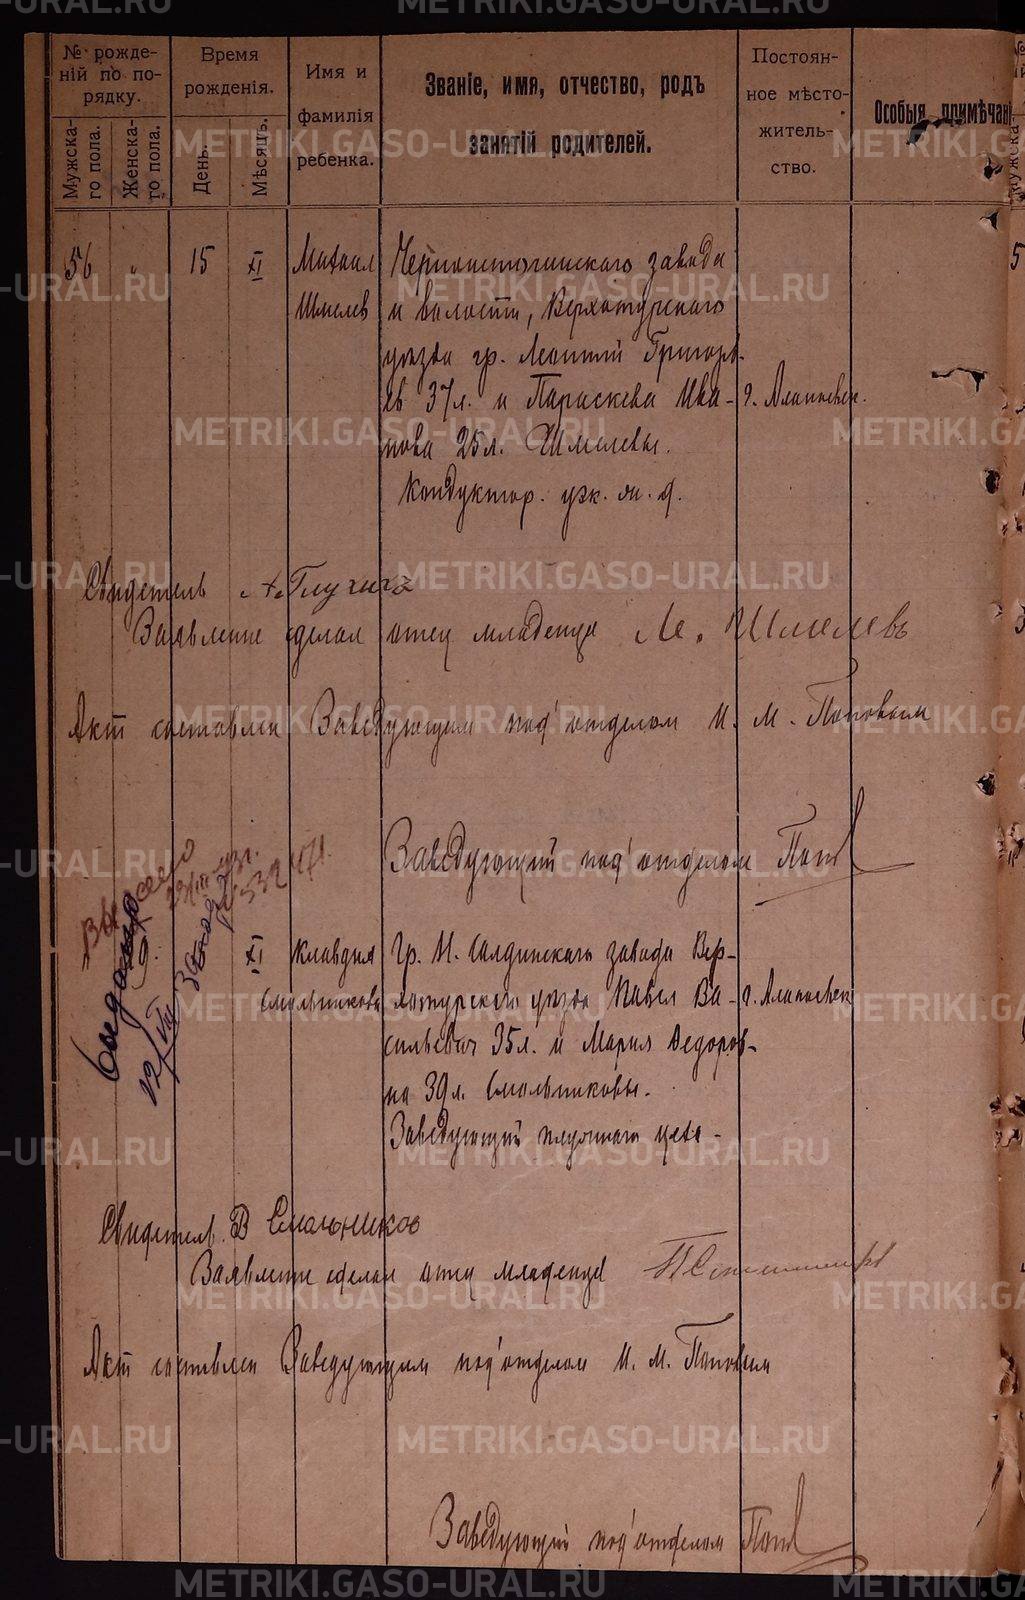 № рожде-
ній по по-
рядку.
Мужска-
го пола.
Женска-
го пола.
Время
рожденія.
День.
Мѣсяцъ.
Имя и
фамилія
ребенка.
Званіе, имя, отчество, родъ
занятій родителей.
Постоян-
ное мѣсто-
житель-
ство.
Особыя примѣчані
56 15 XI
Михаил
Шмелев
Черноисточинского завода
и волости, Верхотурского
уезда гр. Леонтий Григорь-
ев 37 л. и Параскева Ива-
нова 25 л. Шмелевы.
Кондуктор. узк. ж. д.
г. Алапаевск.
Свидетель
Заявление сделал отец младенца Ле. Шмелевъ
Акт составлен Заведующим под'отделом И. М. Поповым
Заведующий под'отделом Попов
XI
Клавдия
Смольникова
Гр. Н. Салдинского завода Вер-
хотурского уезда Павел Ва-
сильевич 35 л. и Мария Федоров-
на 39 л. Смольниковы.
Заведующий цеха -
г. Алапаевск
Свидетель. В Смольников
Заявление сделал отец младенца
Акт составлен Заведующим под'отделом И. М. Поповым
Заведующий под'отделом Попов
METRIKI.GASO-URAL.RU